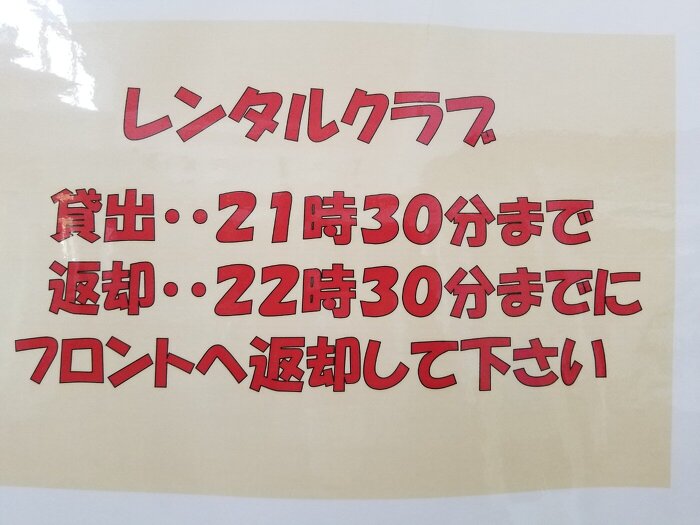 レンタルクラブ
貸出・・21時30分まで
返却・・22時30分までに
フロントへ返却して下さい